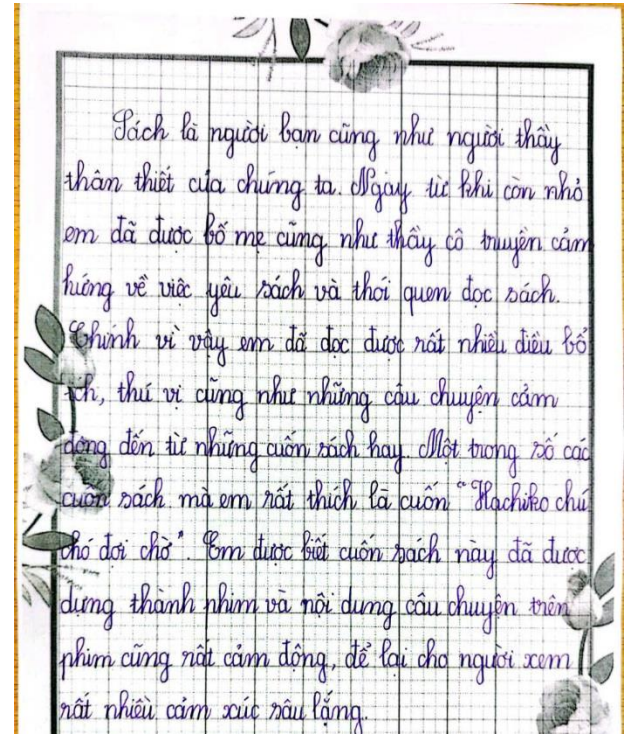 Sách là người bạn cũng như người thầy
thân thiết của chúng ta. Ngay từ khi còn nhỏ
em đã được bố mẹ cũng như thầy cô truyện cảm
hứng về việc yêu sách và thói quen đọc sách.
Chính vì vậy em đã đọc được rất nhiều điều bổ
ích, thú vị cũng như những câu chuyện cảm
động đến từ những cuốn sách hay. Một trong số các
cuốn sách mà em rất thích là cuốn "Hachiko chú
chó đợi chờ". Em được biết cuốn sách này đã được
dựng thành nhim và nội dung câu chuyện trên
phim cũng rất cảm động, để lại cho người xem
rất nhiều cảm xúc sâu lắng.